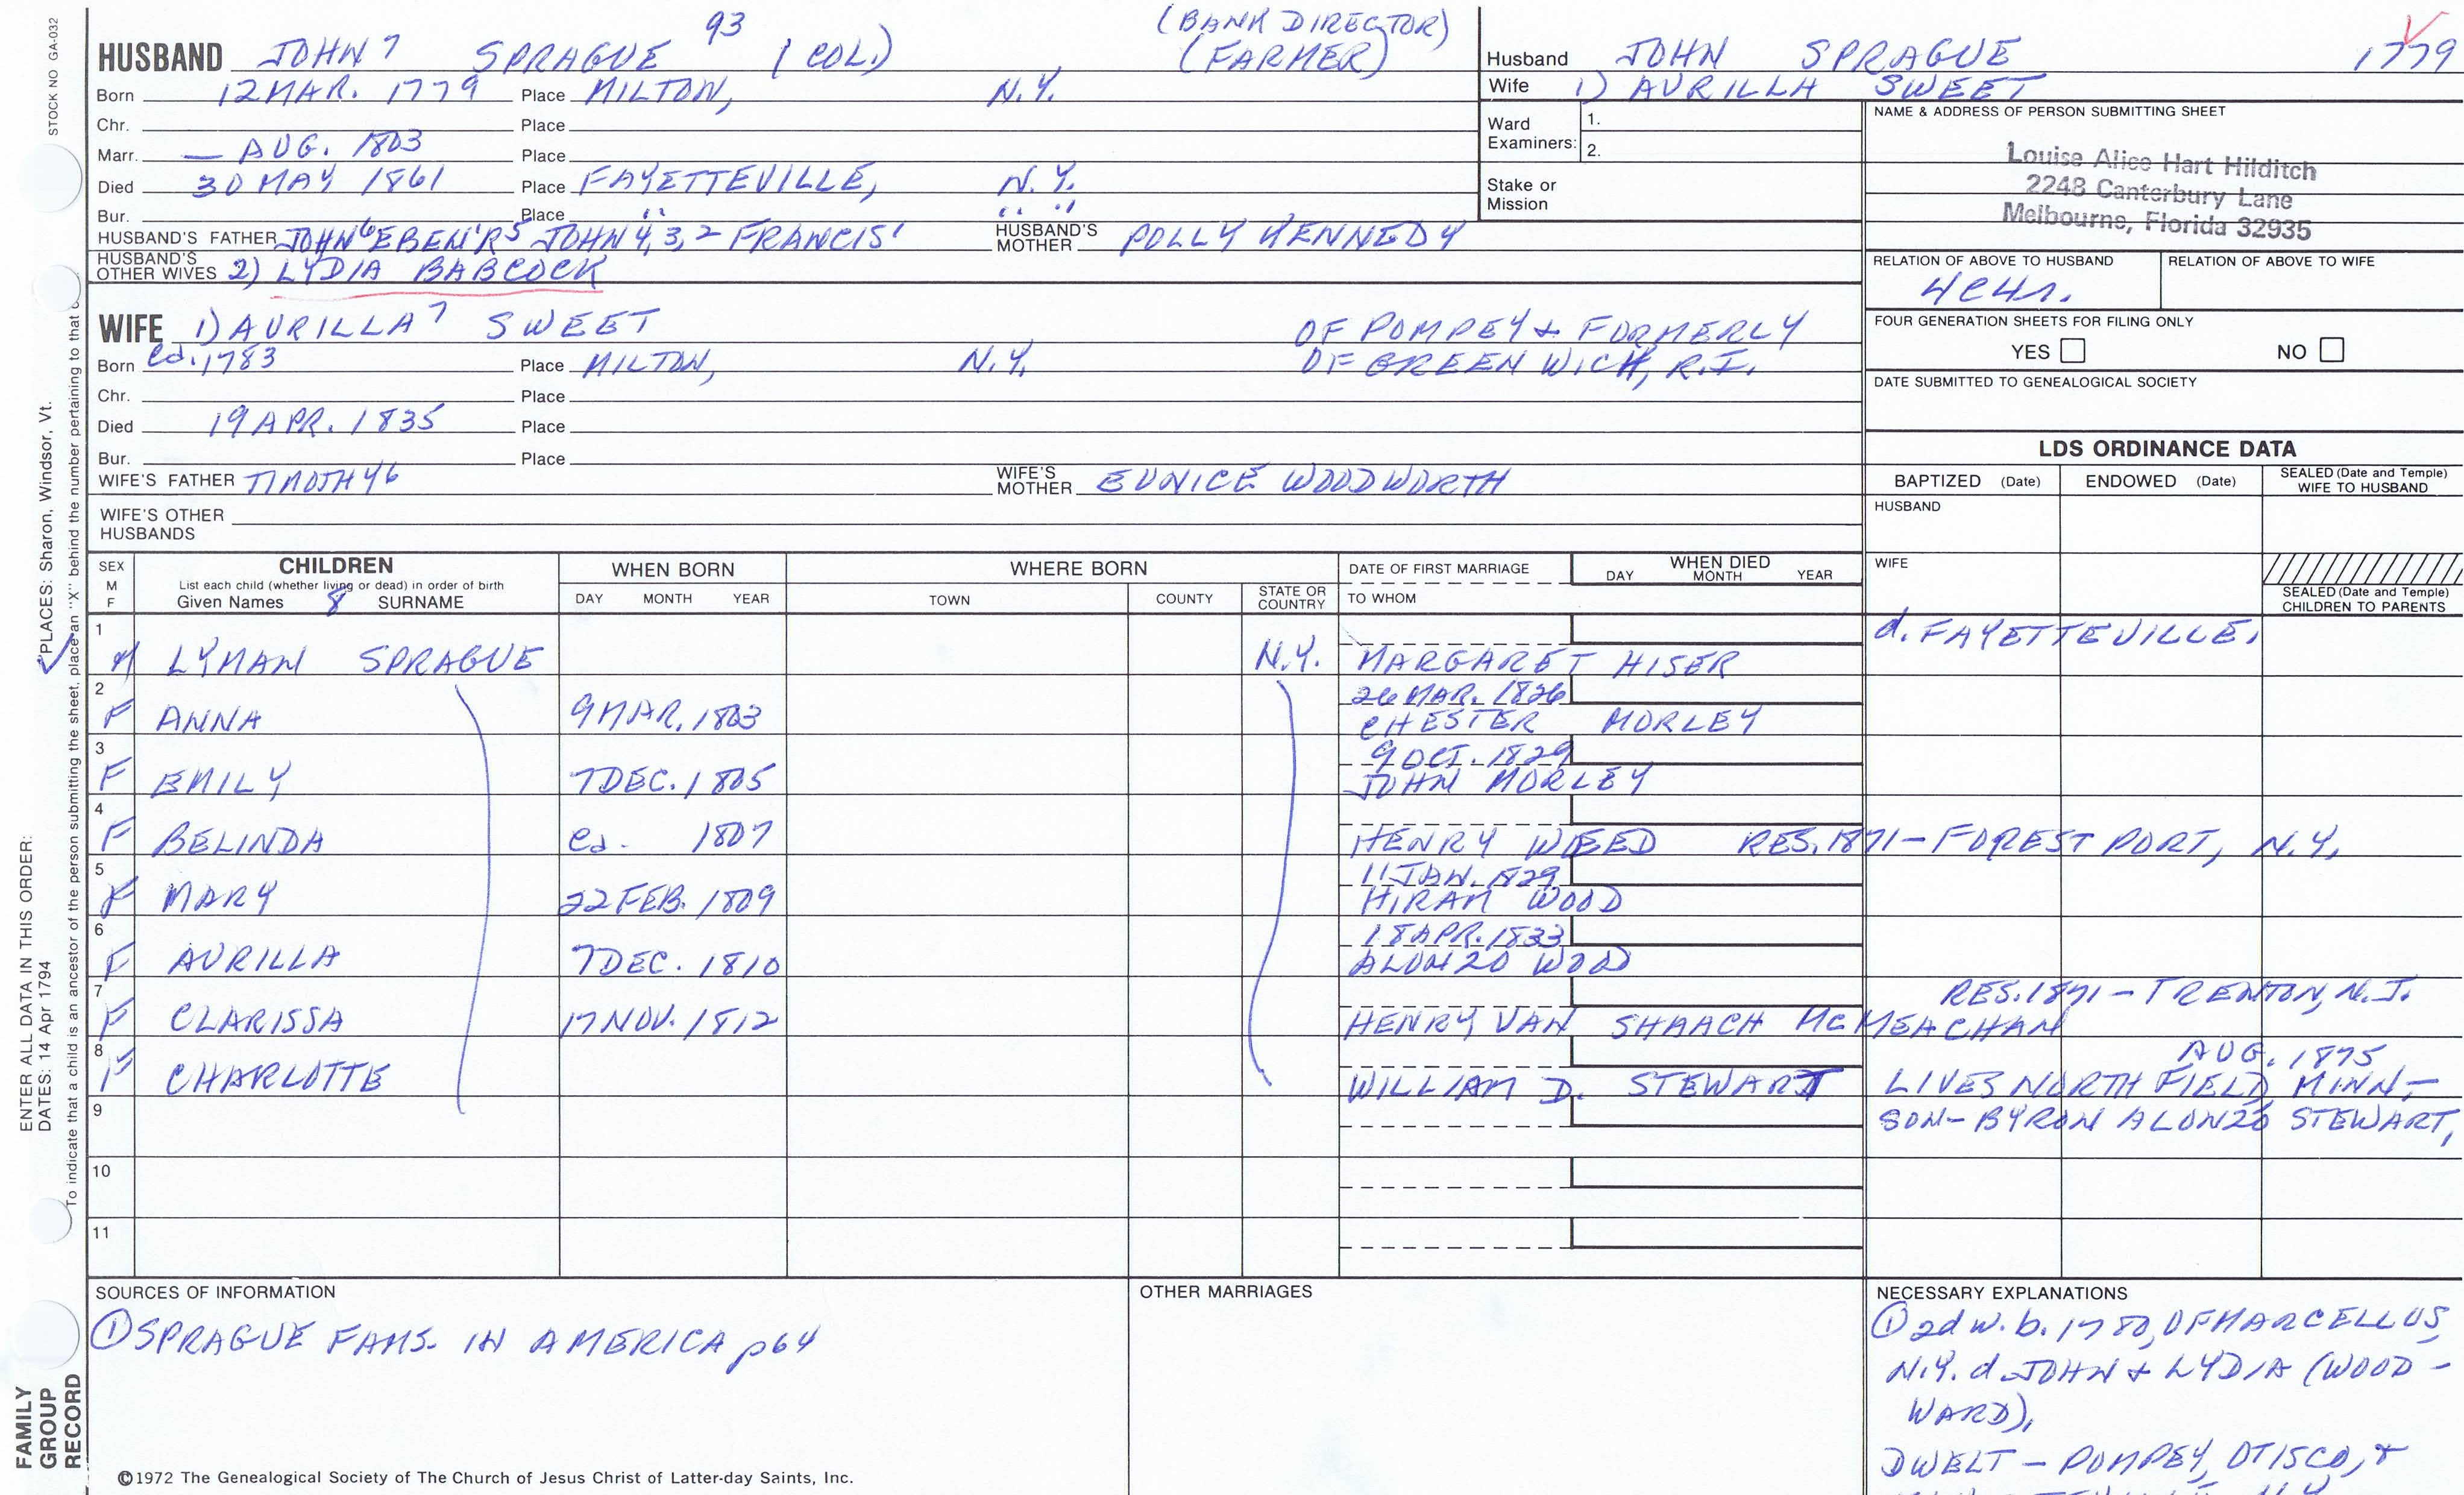 STOCK NO GA-032
HUSBAND JOHN 7 SPRAGUE 93 (COL.) (BANK DIRECTOR)
(FARMER)
Born 12 MAR. 1779 Place MILTON, N.Y.
Chr. Place
Marr. — AUG. 1803 Place
Died 30 MAY 1861 Place FAYETTEVILLE, N.Y.
Bur. Place " " "
HUSBAND'S FATHER JOHN 6 EBEN'R 5 JOHN 4,3,2 FRANCIS 1 HUSBAND'S MOTHER POLLY KENNEDY
HUSBAND'S OTHER WIVES 2) LYDIA BABCOCK
WIFE 1) AURILLA 7 SWEET OF POMPEY & FORMERLY
Born ca. 1783 Place MILTON, N.Y. OF GREENWICH, R.I.
Chr. Place
Died 19 APR. 1835 Place
Bur. Place
WIFE'S FATHER TIMOTHY 6 WIFE'S MOTHER EUNICE WOODWORTH
WIFE'S OTHER HUSBANDS
Husband JOHN SPRAGUE 1779
Wife 1) AURILLA SWEET
Ward Examiners: 1.
2.
Stake or Mission
NAME & ADDRESS OF PERSON SUBMITTING SHEET
Louise Alice Hart Hilditch
2248 Canterbury Lane
Melbourne, Florida 32935
RELATION OF ABOVE TO HUSBAND RELATION OF ABOVE TO WIFE
4C4r.
FOUR GENERATION SHEETS FOR FILING ONLY
YES NO
DATE SUBMITTED TO GENEALOGICAL SOCIETY
LDS ORDINANCE DATA
BAPTIZED (Date) ENDOWED (Date) SEALED (Date and Temple) WIFE TO HUSBAND
HUSBAND
WIFE
SEALED (Date and Temple) CHILDREN TO PARENTS
SEX M F CHILDREN WHEN BORN WHERE BORN DATE OF FIRST MARRIAGE WHEN DIED
List each child (whether living or dead) in order of birth DAY MONTH YEAR
Given Names 8 SURNAME DAY MONTH YEAR TOWN COUNTY STATE OR COUNTRY TO WHOM
1 d. FAYETTEVILLE.
M LYMAN SPRAGUE N.Y. MARGARET HISER
2 26 MAR. 1826
F ANNA 9 MAR. 1803 CHESTER MORLEY
3 9 OCT. 1829
F EMILY 7 DEC. 1805 JOHN MORLEY
4
F BELINDA ca. 1807 HENRY WEED RES. 1871 - FOREST PORT, N.Y.
5 11 JAN. 1829
F MARY 22 FEB. 1809 HIRAM WOOD
6 18 APR. 1833
F AURILLA 7 DEC. 1810 ALONZO WOOD
7 RES. 1871 - TRENTON, N.J.
F CLARISSA 17 NOV. 1812 HENRY VAN SHAACH McMEACHAN
8 AUG. 1875
F CHARLOTTE WILLIAM D. STEWART LIVES NORTHFIELD, MINN -
9 SON - BYRON ALONZO STEWART,
10
11
SOURCES OF INFORMATION OTHER MARRIAGES NECESSARY EXPLANATIONS
① SPRAGUE FAMS. IN AMERICA p64
① 2d w. b. 1780, OF MARCELLUS,
N.Y. d. JOHN & LYDIA (WOOD-
WARD),
DWELT - POMPEY, OTISCO, &
©1972 The Genealogical Society of The Church of Jesus Christ of Latter-day Saints, Inc.
ENTER ALL DATA IN THIS ORDER:
DATES: 14 Apr 1794 PLACES: Sharon, Windsor, Vt.
To indicate that a child is an ancestor of the person submitting the sheet, place an "X" behind the number pertaining to that
FAMILY
GROUP
RECORD